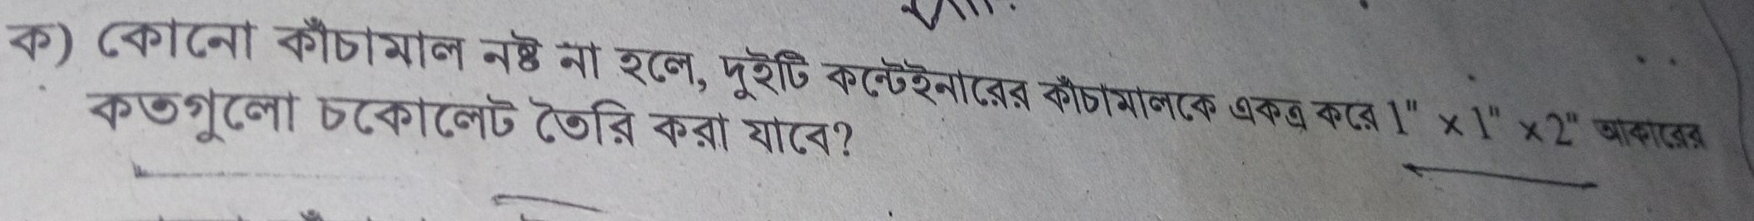 ক) কোনো কাঁচামাল নষ্ট না হলে, দুইটি কন্টেইনারের কাঁচামালকে একত্র করে 1" × 1" × 2" আকারের
কতগুলো চকোলেট তৈরি করা যাবে?